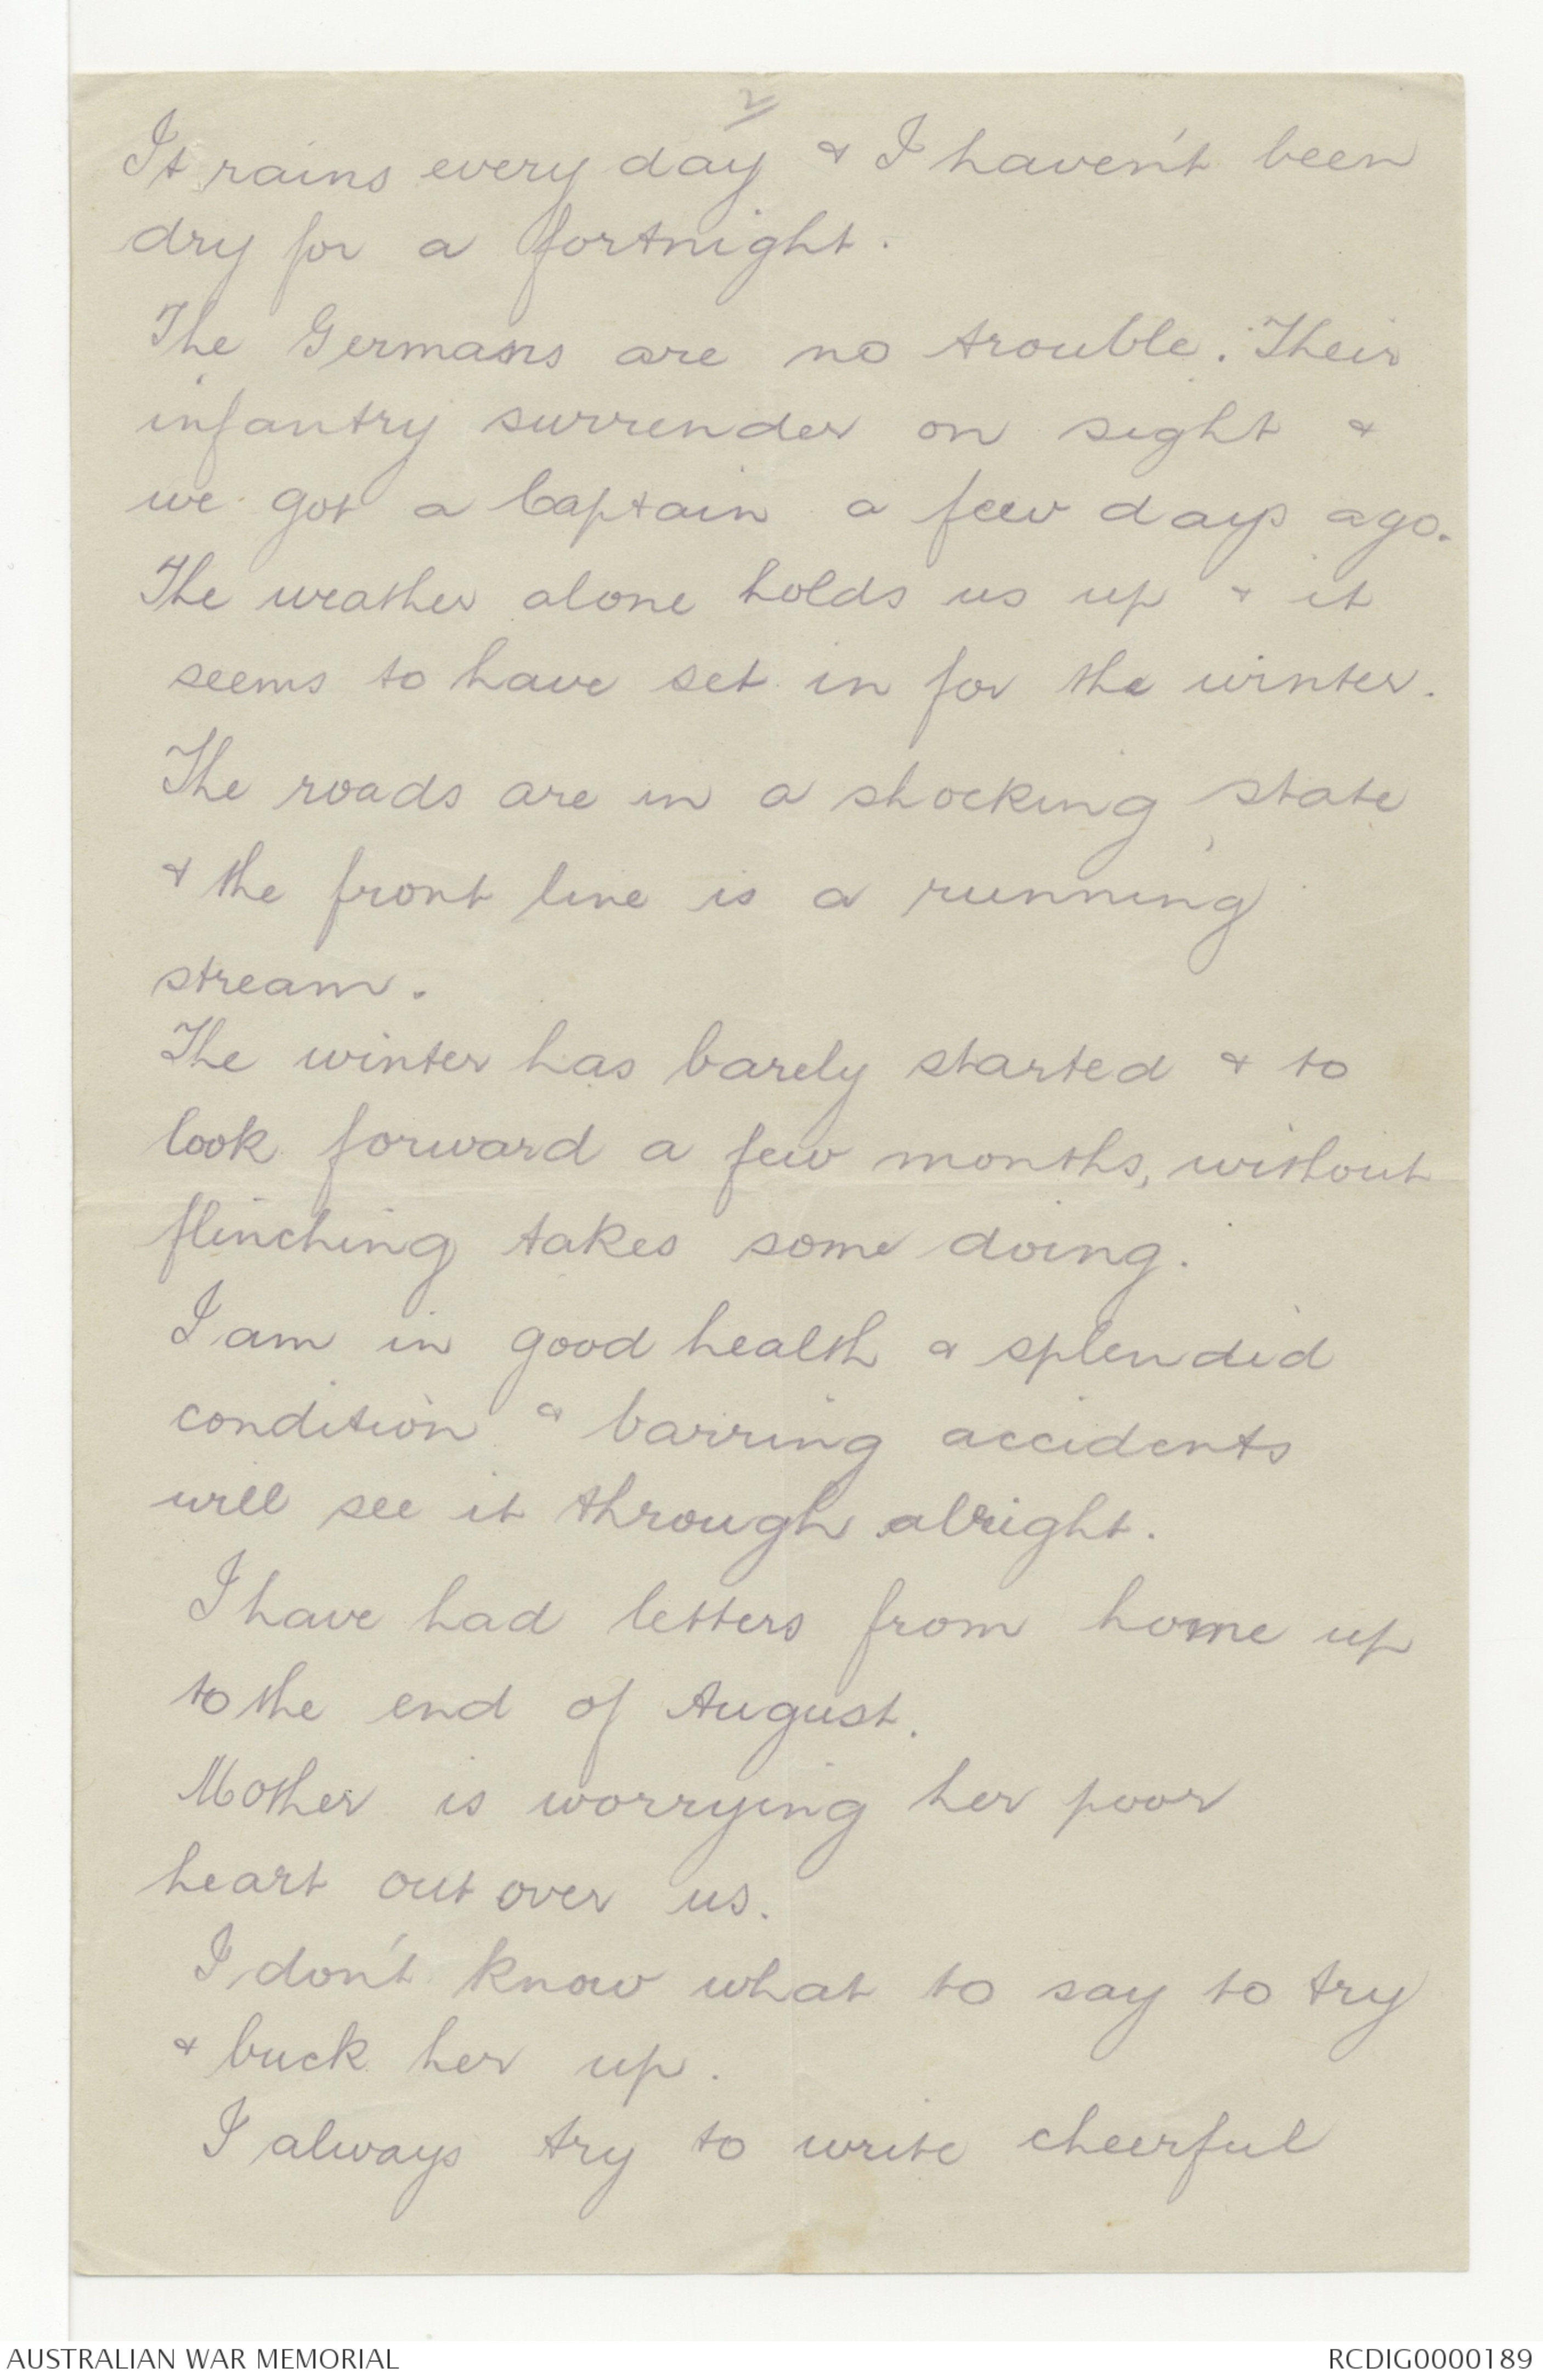 2
It rains every day & I haven't been
dry for a fortnight.
The Germans are no trouble. Their
infantry surrender on sight &
we got a Captain a few days ago.
The weather alone holds us up & it
seems to have set in for the winter.
The roads are in a shocking state
& the front line is a running
stream.
The winter has barely started & to
look forward a few months, without
flinching takes some doing.
I am in good health & splendid
condition & barring accidents
will see it through alright.
I have had letters from home up
to the end of August.
Mother is worrying her poor
heart out over us.
I don't know what to say to try
& buck her up.
I always try to write cheerful
AUSTRALIAN WAR MEMORIAL
RCDIG0000189